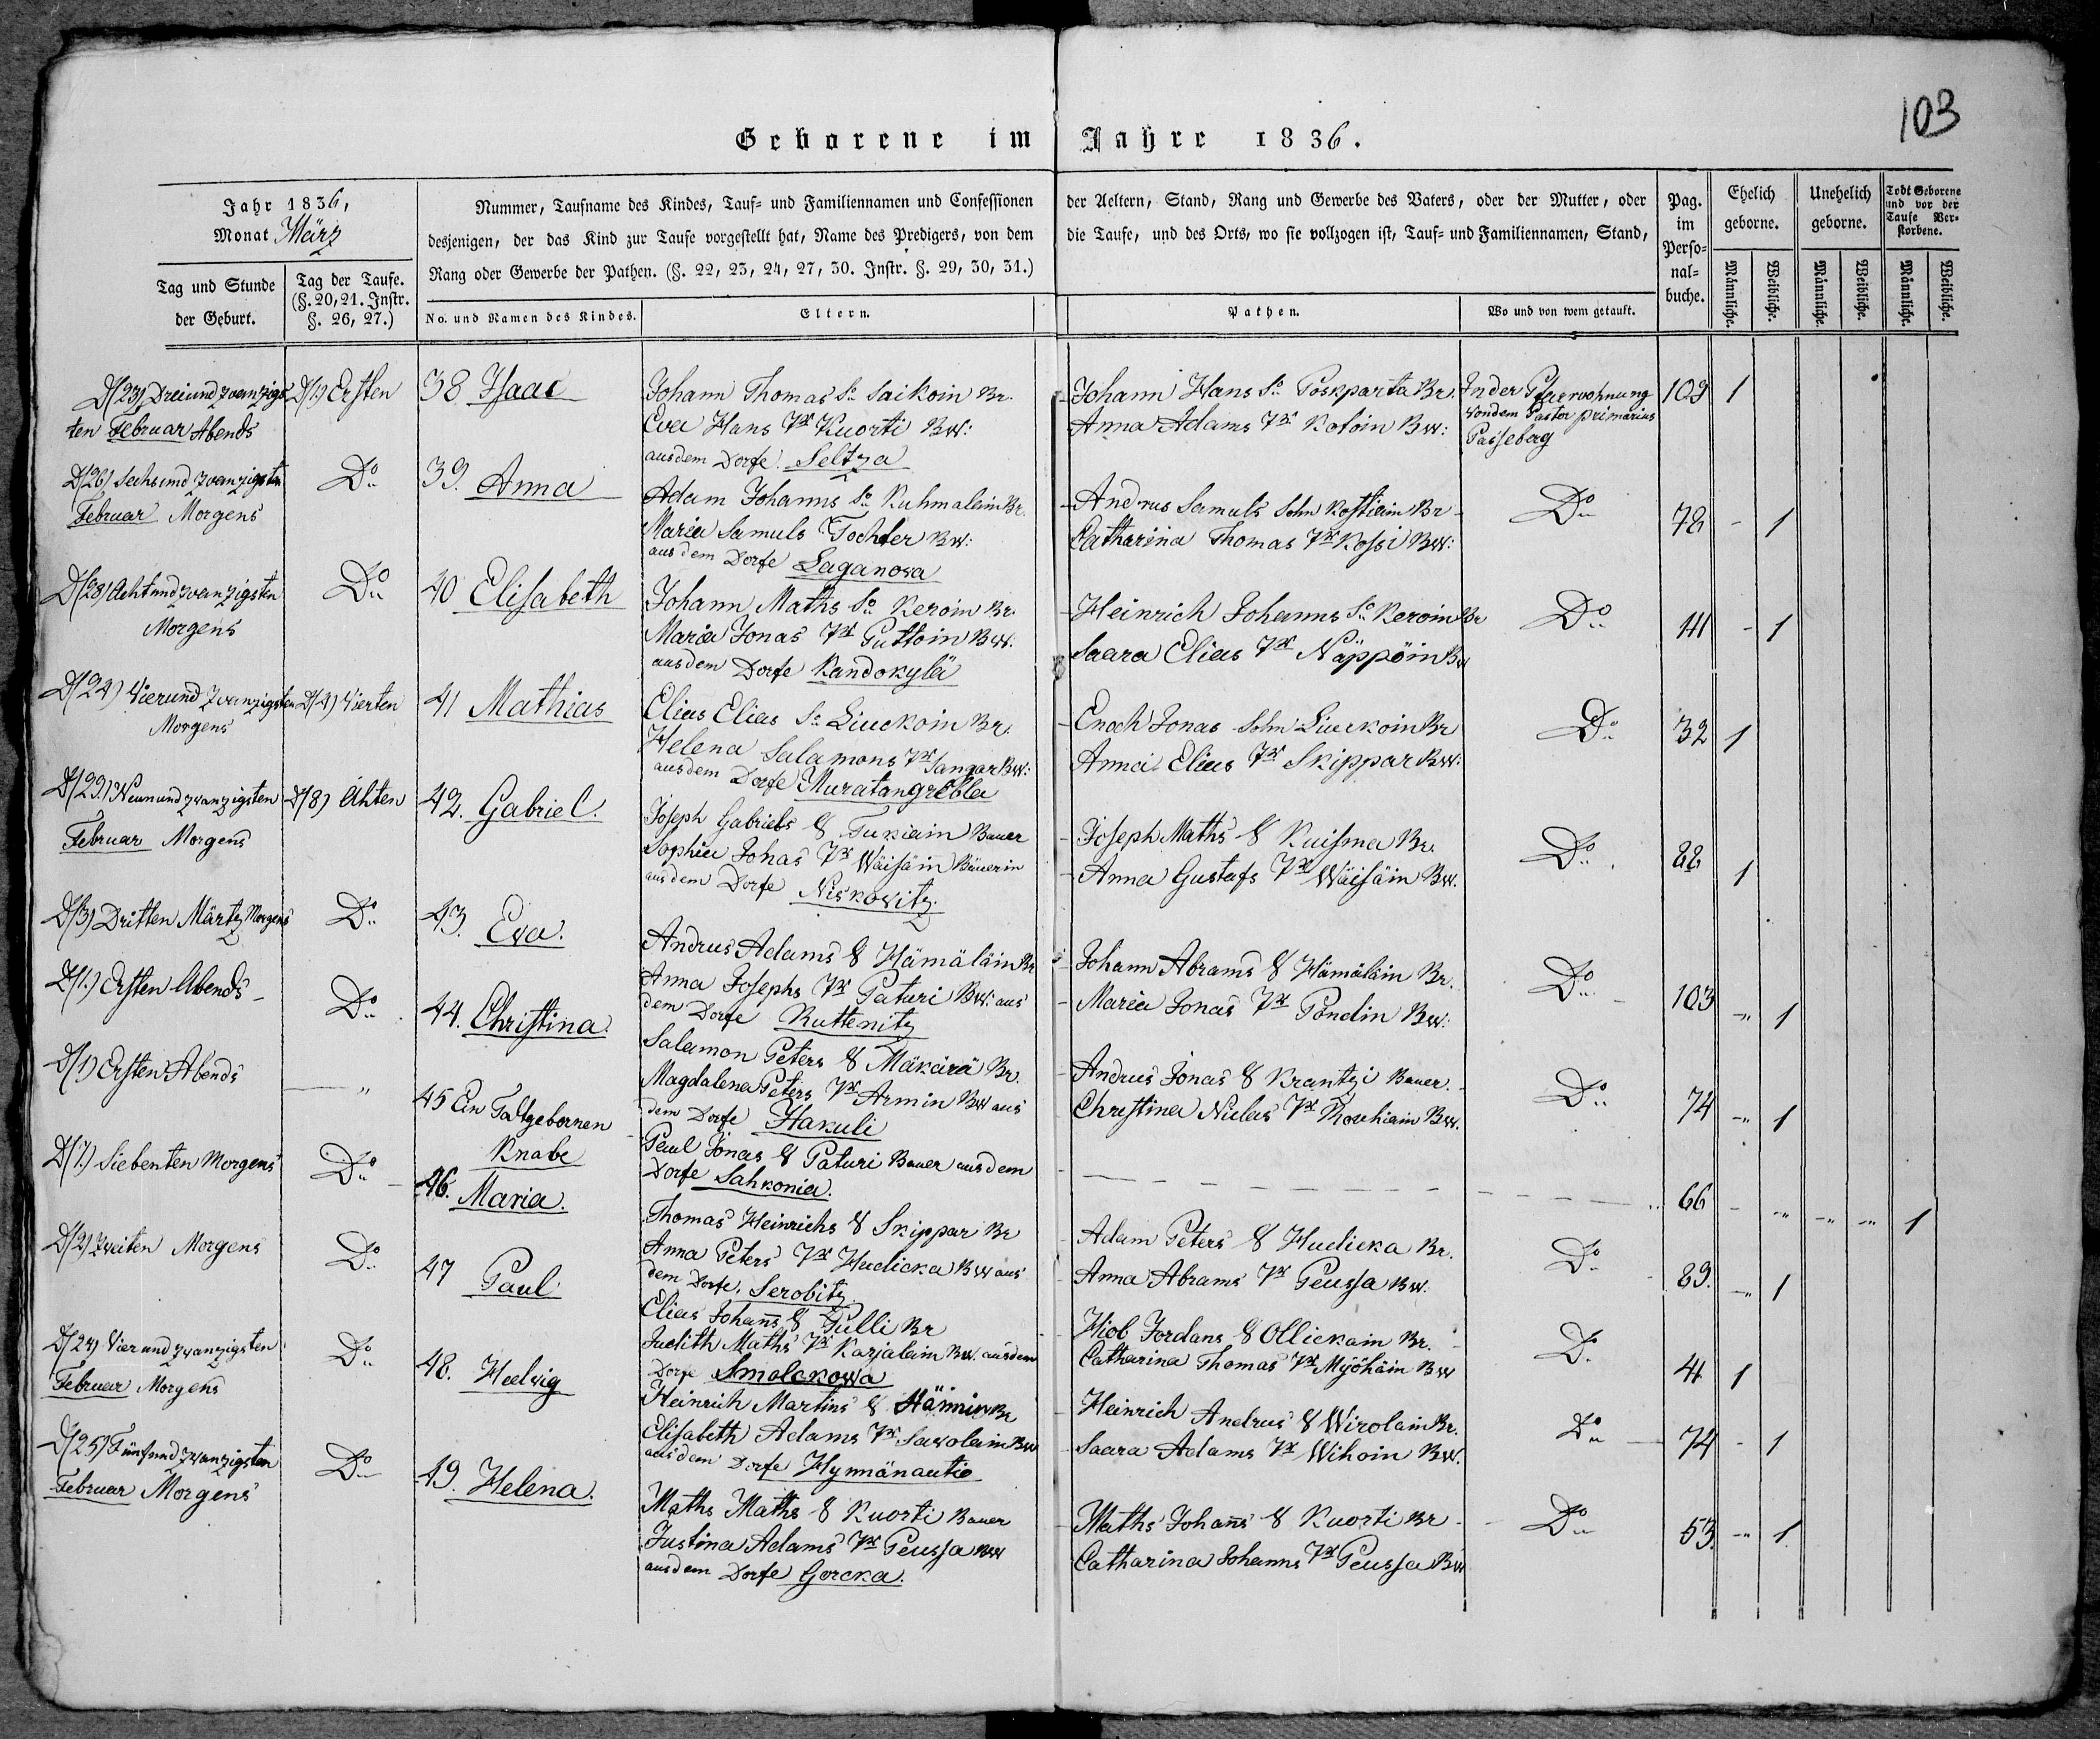 103
Geborene im Jahre 1836.
Jahr 1836,
Monat März
Tag und Stunde der Geburt.
Tag der Taufe. (§. 20, 21. Instr. §. 26, 27.)
Nummer, Taufname des Kindes, Tauf- und Familiennamen und Confessionen der Aeltern, Stand, Rang und Gewerbe des Vaters, oder der Mutter, oder
desjenigen, der das Kind zur Taufe vorgestellt hat, Name des Predigers, von dem die Taufe, und des Orts, wo sie vollzogen ist, Tauf- und Familiennamen, Stand,
Rang oder Gewerbe der Pathen. (§. 22, 23, 24, 27, 30. Instr. §. 29, 30, 31.)
No. und Namen des Kindes.
Eltern.
Pathen.
Wo und von wem getauft.
Pag. im Perso-nal-buche.
Ehelich geborne.
Unehelich geborne.
Todt Geborene und vor der Taufe Ver-storbene.
Männliche. Weibliche. Männliche. Weibliche. Männliche. Weibliche.
D/23) Dreiundzwanzigs-
ten Februar Abends
D/1.) Ersten
38 Isaac
Johann Thomas So Saikoin Br.
Eva Hans Tr Kuorti BW:
aus dem Dorfe Seltza
Johann Hans So Poskparta Br.
Anna Adams Tr Kotoin BW:
In der Pfarrwohnung
von dem Pastor primarius
103 1
D/26) Sechsundzwanzigsten
Februar Morgens
Do
39. Anna
Adam Johanns So Kuhmalain Br.
Maria Samuels Tochter BW:
aus dem Dorfe Laganowa
Andrus Samuls Sohn Kostiain Br
Catharina Thomas Tr Kossi BW:
Do
78 - 1
D/28) Achtundzwanzigsten
Morgens
Do
40 Elisabeth
Johann Maths So Keroin Br.
Maria Jonas Tr Puttoin BW.
aus dem Dorfe Kandokylä
Heinrich Johanns So Keroin Br
Saara Elias Tr Näppöin BW
Do
111 - 1
D/24) Vierundzwanzigsten
Morgens
D/4) Vierten
41 Mathias
Elias Elias So Liuckoin Br.
Helena Salamons Tr Sangar BW:
aus dem Dorfe
Enoch Jonas Sohn Liuckoin Br
Anna Elias Tr Skippar BW:
Do
32 1
D/29.) Neunundzwanzigsten
Februar Morgens
D/8) Ahten
42. Gabriel.
Joseph Gabriels S Tukiain Bauer
Sophia Johas Tr Wäisäin Bäuerin
aus dem Dorfe Niskowitz.
Joseph Maths S Kuisma Br.
Anna Gustafs Tr Wäisäin BW.
Do
88 1
D/3) Dritten Märtz Morgens
Do
43. Eva.
Andrus Adams S Hämäläin Br
Anna Josephs Tr Paturi BW. aus
dem Dorfe Ruttenitz
Johann Abrams S Hämäläin Br.
Maria Jonas Tr Pöndin BW:
Do
103 - 1
D/1.) Ersten Abends
Do
44. Christina.
Salamon Peters S Mäkärä Br.
Magdalena Peters Tr Armin BW aus
dem Dorfe Hakuli
Andrus Jonas S Krantzi Bauer.
Christina Niclas Tr BW.
Do
74 - 1
D/1) Ersten Abends
45 Ein Todtgebornen
Knabe
Paul Jonas S Paturi Bauer aus dem
Dorfe Sahkonia.
66 - - - - 1
D/7.) Siebenten Morgens
Do
46. Maria.
Thomas Heinrichs S Skippar Br
Anna Peters Tr Hudicka BW aus
dem Dorfe. Serobitz
Adam Peters S Hudicka Br.
Anna Abrams Tr Peussa BW.
Do
89. - 1
D/2) Zweiten Morgens
Do
47 Paul
Elias Johans S Pulli Br
Judith Maths Tr Karjalain BW. aus dem
Dorfe Smolckowa
Hiob Jordans S Ollickain Br.
Catharina Thomas Tr Myöhäin BW
Do
41 1
D/24) Vierundzwanzigsten
Februar Morgens
Do
48. Hedwig
Heinrich Martins S Hännin Br
Elisabeth Adams Tr Sawolain BW
aus dem Dorfe Hynnänautio
Heinrich Andrus S Wirolain Br.
Saara Adams Tr Wihoin BW.
Do
74 - 1
D/25) Fünfundzwanzigsten
Februar Morgens
Do
49. Helena.
Maths Maths S Kuorti Bauer
Justina Adams Tr Peussa BW
aus dem Dorfe Gorcka.
Maths Johans S Kuorti Br
Catharina Johanns Tr Peussa BW
Do
53. - 1.